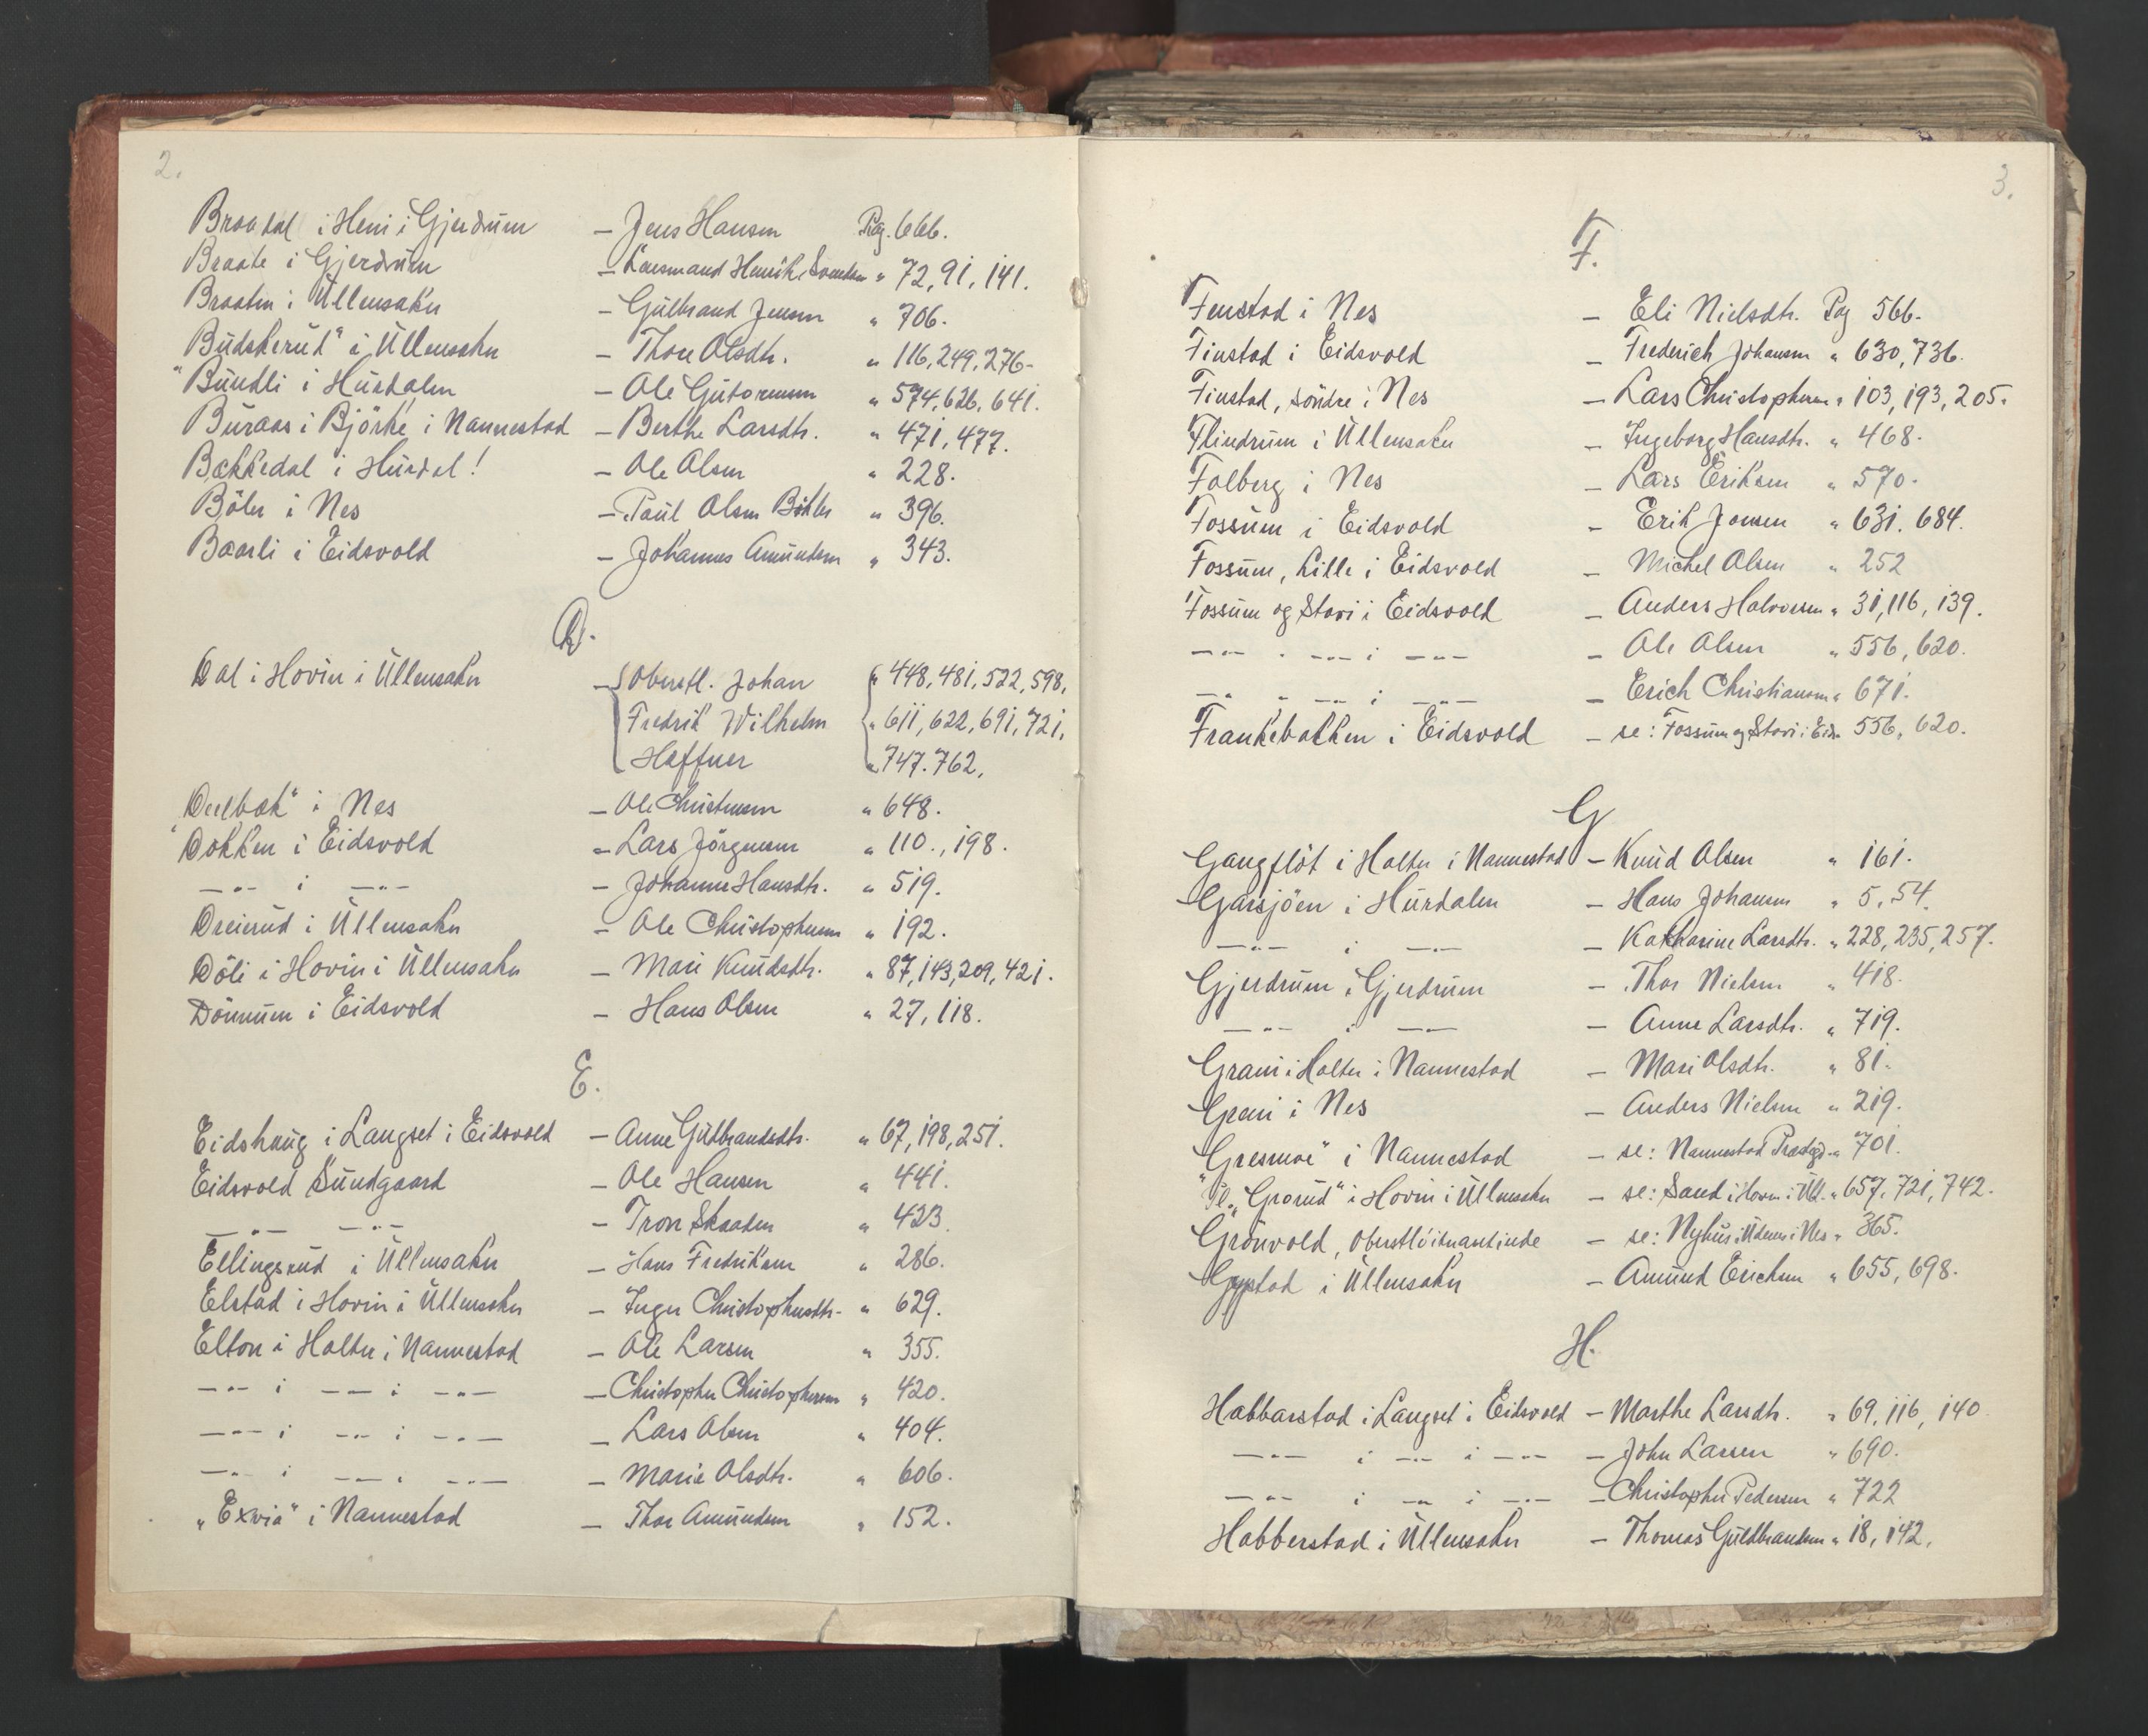 2.
Braadal i Heni i Gjerdrum — Jens Hansen Pag. 666.
Braate i Gjerdrum — Lensmand Henrik Svendsen " 72, 91, 141.
Braaten i Ullensaker — Gulbrand Jensen " 706.
"Budskerud" i Ullensaker — Thore Olsdtr. " 116, 249, 276.
Bundli i Hurdalen — Ole Gutormsen " 574, 626, 641.
Buraas i Björke i Nannestad — Berthe Larsdtr. " 471, 477.
Bækkedal i Hurdal! — Ole Olsen " 228.
Böler i Nes — Paul Olsen Böhler " 396.
Baarli i Eidsvold — Johannes Amundsen " 343.
D.
Dal i Hovin i Ullensaker — Oberstl. Johan " 448, 481, 522, 598,
Fredrik Wilhelm " 611, 622, 691, 721,
Haffner " 747. 762.
"Deelbæk" i Nes — Ole Christensen " 648.
Dokken i Eidsvold — Lars Jörgensen " 110., 198.
—"— i —"— — Johanne Hansdtr. " 519.
Dreierud i Ullensaker — Ole Christophersen " 192.
Döli i Hovin i Ullensaker — Mari Knudsdtr. " 87, 143, 209, 421.
Dönnum i Eidsvold — Hans Olsen " 27, 118.
E.
Eidshaug i Langset i Eidsvold — Anne Guldbrandsdtr. " 67, 198, 251.
Eidsvold Sundgaard — Ole Hansen " 441.
—"— —"— — Tron Skaaden " 423.
Ellingsrud i Ullensaker — Hans Fredriksen " 286.
Elstad i Hovin i Ullensaker — Inger Christophersdtr. " 629.
Elton i Holter i Nannestad — Ole Larsen " 355.
—"— i —"— i —"— — Christopher Christophersen " 420.
—"— i —"— i —"— — Lars Olsen " 404.
—"— i —"— i —"— — Marie Olsdtr. " 606.
"Exvia" i Nannestad — Thor Amundsen " 152.
3.
F.
Fenstad i Nes — Eli Nielsdtr. Pag 566.
Finstad i Eidsvold — Frederich Johansen " 630, 736.
Finstad, söndre i Nes — Lars Christophersen " 103, 193, 205.
Flindrum i Ullensaker — Ingeborg Hansdtr. " 468.
Folberg i Nes — Lars Eriksen " 570.
Fossum i Eidsvold — Erik Jonsen " 631. 684.
Fossum, Lille i Eidsvold — Michel Olsen " 252
Fossum og Stori i Eidsvold — Anders Halvorsen " 31, 116, 139.
—"— " —"— i —"— — Ole Olsen " 556, 620.
—"— " —"— i —"— — Erich Christiansen " 671.
Frankebakken i Eidsvold — se: Fossum og Stori i Eids. 556, 620.
G
Gangflöt i Holter i Nannestad — Knud Olsen " 161.
Garsjöen i Hurdalen — Hans Johansen " 5, 54.
—"— i —"— — Katharine Larsdtr. " 228, 235, 257.
Gjerdrum i Gjerdrum — Thor Nielsen " 418.
—"— i —"— — Anne Larsdtr. " 719.
Grani i Holter i Nannestad — Mari Olsdtr. " 81.
Greni i Nes — Anders Nielsen " 219.
"Gresmoe" i Nannestad — se: Nannestad Præstgd. " 701.
Pl. "Grorud" i Hovin i Ullensaker — se: Sand i Hovin i Ull. " 657, 721, 742.
Grönvold, Oberstlöitnantinde — se: Nyhus i Udenes i Nes " 365.
Gystad i Ullensaker — Amund Erichsen " 655, 698.
H.
Habbarstad i Langset i Eidsvold — Marthe Larsdtr. " 69, 116, 140
—"— i —"— i —"— — John Larsen " 690.
—"— i —"— i —"— — Christopher Pedersen " 722
Habberstad i Ullensaker — Thomas Guldbrandsen " 18, 142,